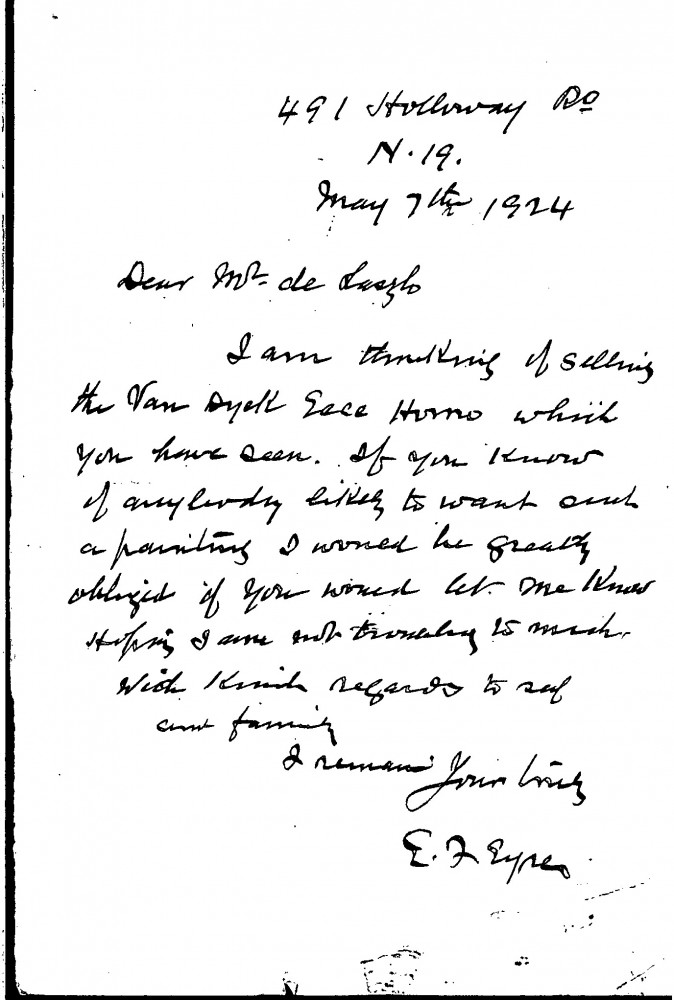 491 Holloway Rd
N.19.
May 7th 1924
Dear Mr. de Laszlo
I am thinking of selling
the Van Dyck Ecce Homo which
you have seen. If you know
of anybody likely to want such
a painting I would be greatly
obliged if you would let me know
Hoping I am not troubling to much.
With kind regards to self
and family
I remain Yours truly
E. F. Eyres